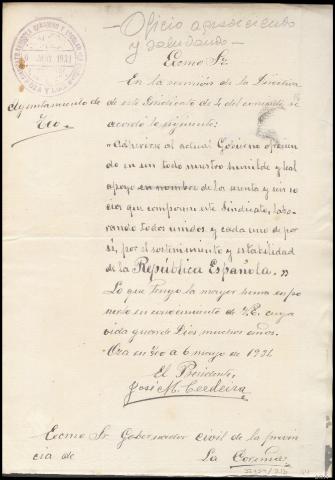 - Oficio agradeciendo
y saludando -
Excmo Sr.
En la reunión de la Directiva
de este Sindicato de 4 del corriente se
acordó lo siguiente:
Ayuntamiento de
Teo.
"Adherirse al actual Gobierno ofrecien
do en un todo nuestro humilde y leal
apoyo en nombre de los ciento y seis so
cios que componen este Sindicato, labo-
rando todos unidos y cada uno de por
sí, por el sostenimiento y estabilidad
de la República Española."
Lo que tengo la mayor honra en po
nerlo en conocimiento de V.E. cuya
vida guarde Dios muchos años.
en Teo a 6 mayo de 1931
El Presidente,
José M. Cerdeira
Excmo Sr Gobernador civil de la provin
cia de La Coruña